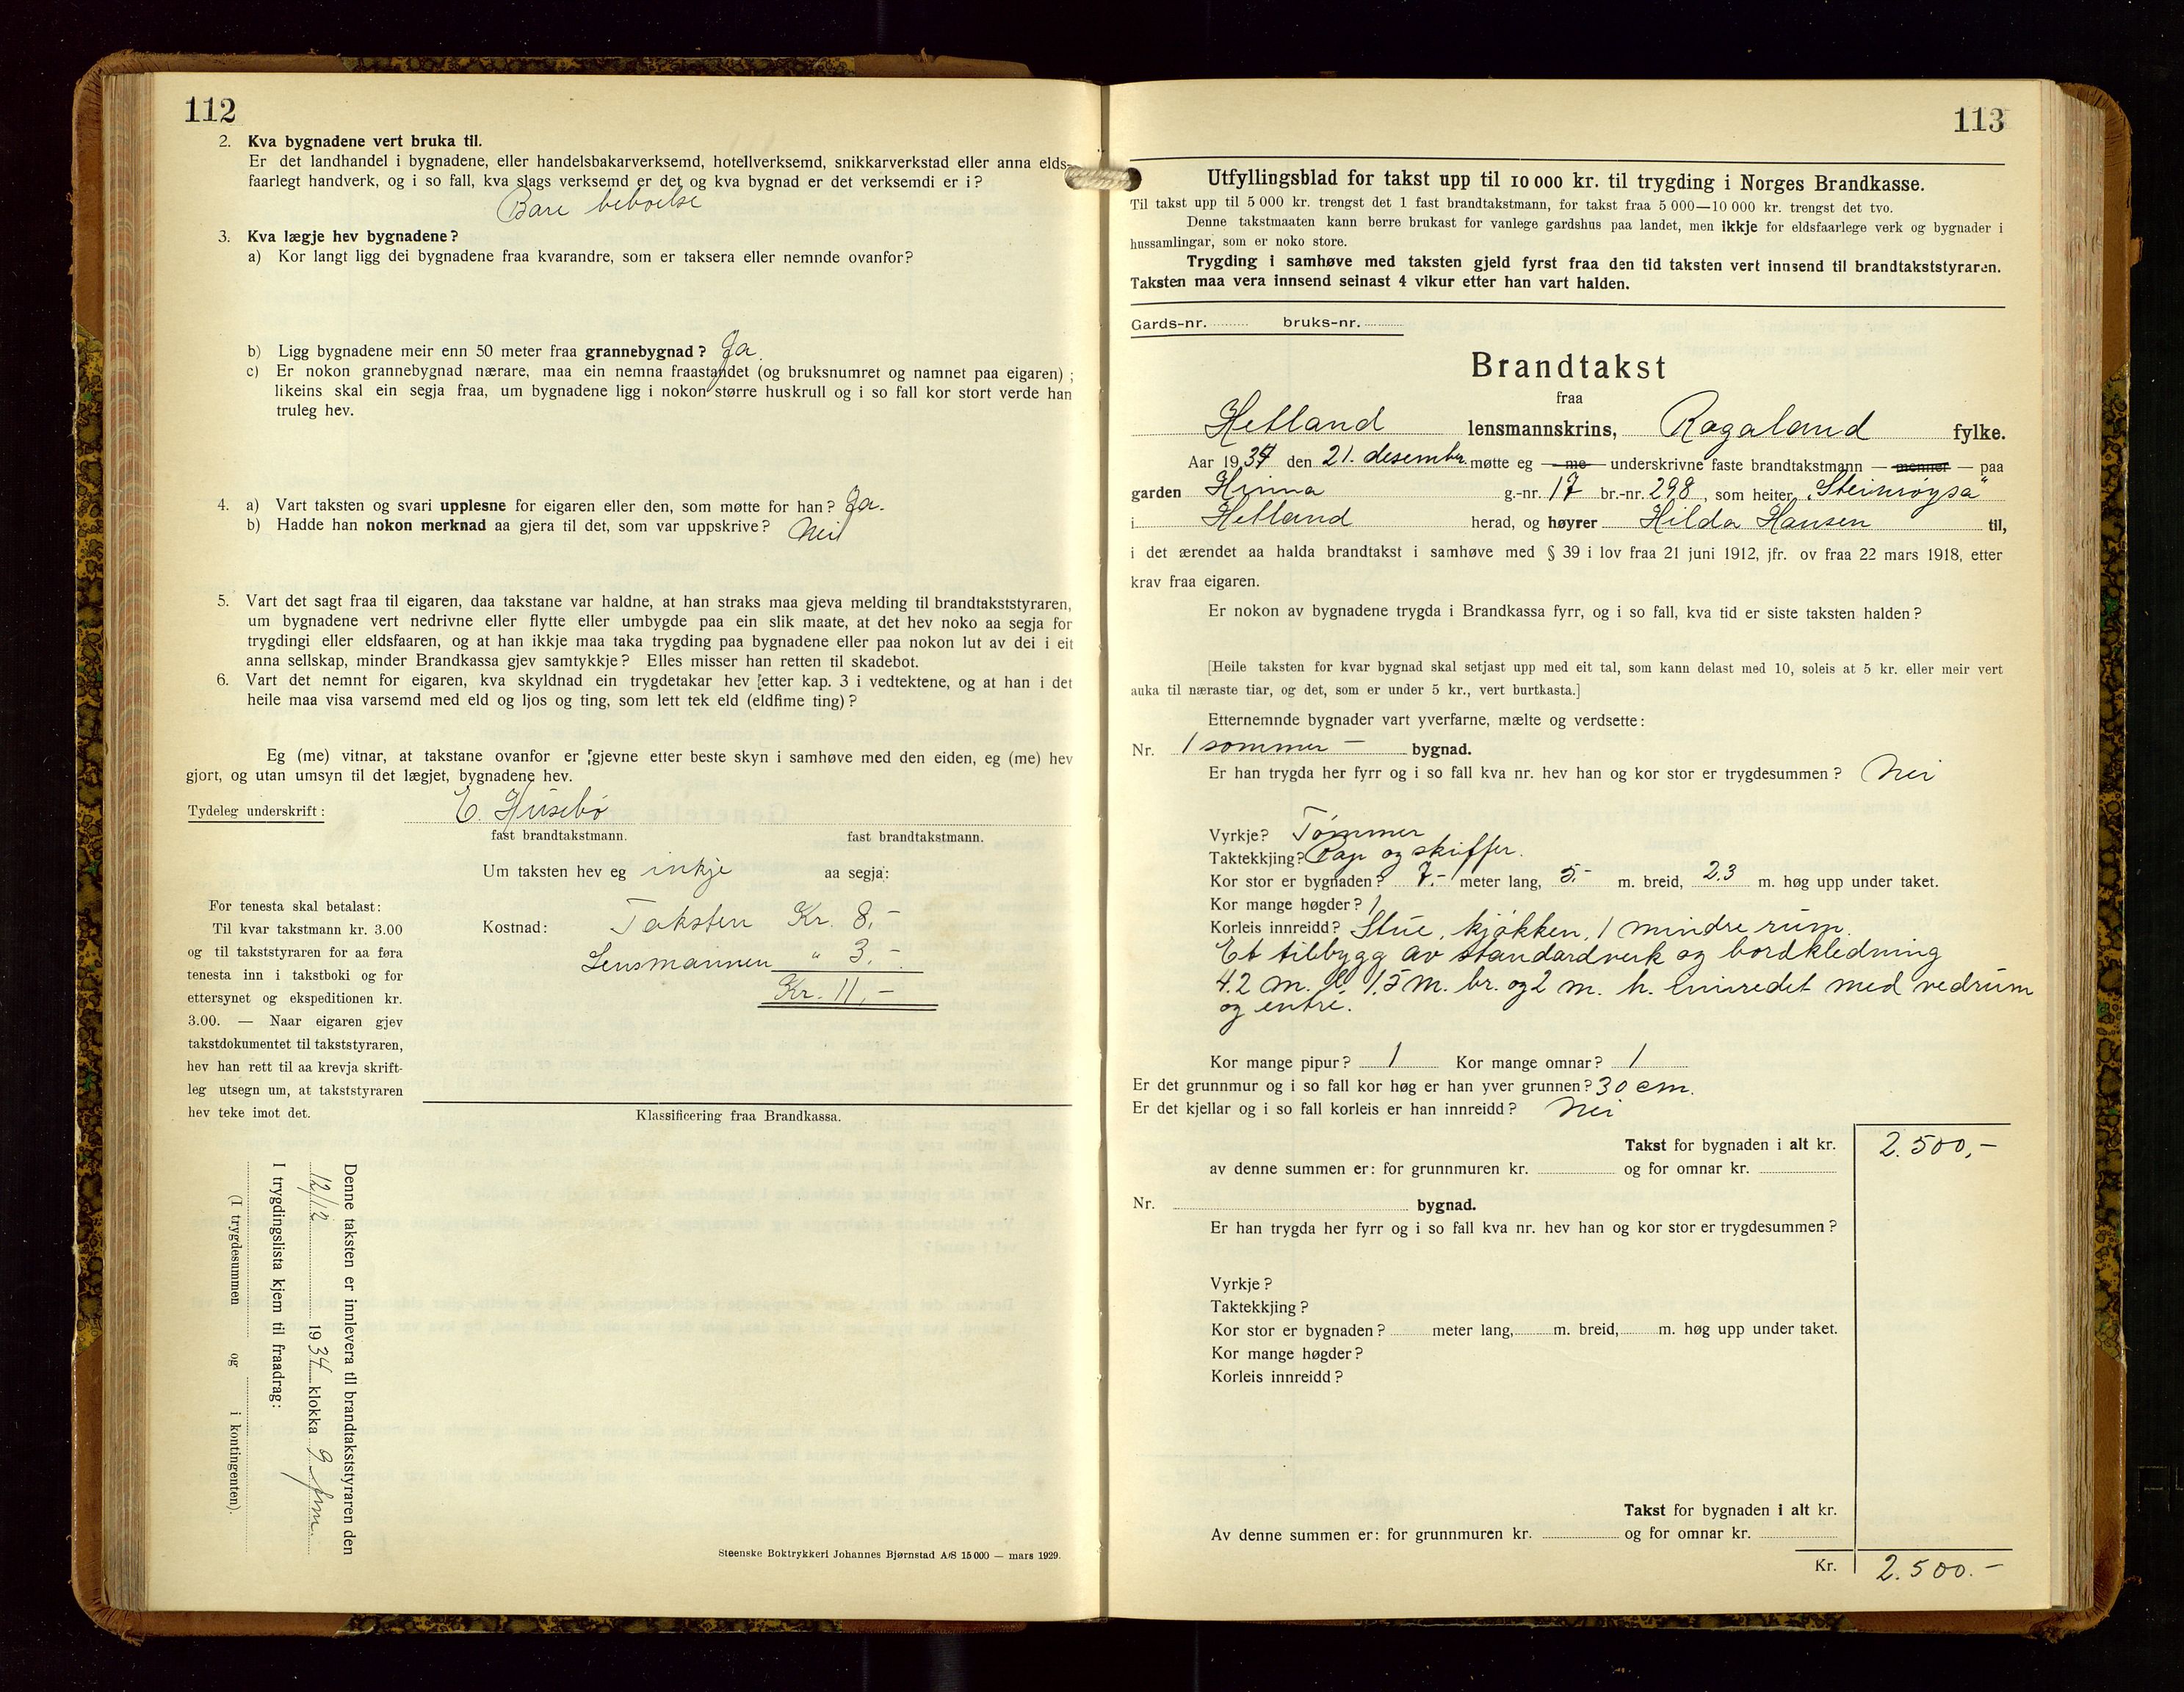 112
2. Kva bygnadene vert bruka til.
Er det landhandel i bygnadene, eller handelsbakarverksemd, hotellverksemd, snikkarverkstad eller anna elds-
faarlegt handverk, og i so fall, kva slags verksemd er det og kva bygnad er det verksemdi er i?
Bare beboelse
3. Kva lægje hev bygnadene?
a) Kor langt ligg dei bygnadene fraa kvarandre, som er taksera eller nemnde ovanfor?
b) Ligg bygnadene meir enn 50 meter fraa grannebygnad? Ja.
c) Er nokon grannebygnad nærare, maa ein nemna fraastandet (og bruksnumret og namnet paa eigaren) ;
likeins skal ein segja fraa, um bygnadene ligg i nokon større huskrull og i so fall kor stort verde han
truleg hev.
4. a) Vart taksten og svari upplesne for eigaren eller den, som møtte for han? Ja.
b) Hadde han nokon merknad aa gjera til det, som var uppskrive? Nei
5. Vart det sagt fraa til eigaren, daa takstane var haldne, at han straks maa gjeva melding til brandtakststyraren,
um bygnadene vert nedrivne eller flytte eller umbygde paa ein slik maate, at det hev noko aa segja for
trygdingi eller eldsfaaren, og at han ikkje maa taka trygding paa bygnadene eller paa nokon lut av dei i eit
anna sellskap, minder Brandkassa gjev samtykkje? Elles misser han retten til skadebot.
6. Vart det nemnt for eigaren, kva skyldnad ein trygdetakar hev [etter kap. 3 i vedtektene, og at han i det
heile maa visa varsemd med eld og ljos og ting, som lett tek eld (eldfime ting)?
Eg (me) vitnar, at takstane ovanfor er gjevne etter beste skyn i samhøve med den eiden, eg (me) hev
gjort, og utan umsyn til det lægjet, bygnadene hev.
Tydeleg underskrift: E. Húsebø
fast brandtakstmann. fast brandtakstmann.
Um taksten hev eg inkje aa segja:
Kostnad: Taksten Kr. 8,-
Lensmannen " 3.-
Kr. 11,-
For tenesta skal betalast:
Til kvar takstmann kr. 3.00
og til takststyraren for aa føra
tenesta inn i takstboki og for
ettersynet og ekspeditionen kr.
3.00. — Naar eigaren gjev
takstdokumentet til takststyraren,
hev han rett til aa krevja skrift-
leg utsegn um, at takststyraren
hev teke imot det.
Klassificering fraa Brandkassa.
Denne taksten er innlevera til brandtakststyraren den
12/12 1934 klokka 9 fm.
I trygdingslista kjem til fraadrag:
(I trygdesummen og i kontingenten).
Steenske Boktrykkeri Johannes Bjørnstad A/S 15 000 — mars 1929.
113
Utfyllingsblad for takst upp til 10 000 kr. til trygding i Norges Brandkasse.
Til takst upp til 5 000 kr. trengst det 1 fast brandtakstmann, for takst fraa 5 000—10 000 kr. trengst det tvo.
Denne takstmaaten kann berre brukast for vanlege gardshus paa landet, men ikkje for eldsfaarlege verk og bygnader i
hussamlingar, som er noko store.
Trygding i samhøve med taksten gjeld fyrst fraa den tid taksten vert innsend til brandtakststyraren.
Taksten maa vera innsend seinast 4 vikur etter han vart halden.
Gards-nr. bruks-nr.
Brandtakst
fraa
Hetland lensmannskrins, Rogaland fylke.
Aar 1934 den 21. desember møtte eg — me — underskrivne faste brandtakstmann — menner — paa
garden Hinna g.-nr. 17 br.-nr. 298, som heiter "Steinrøysa"
i Hetland herad, og høyrer Hilda Hansen til,
i det ærendet aa halda brandtakst i samhøve med § 39 i lov fraa 21 juni 1912, jfr. ov fraa 22 mars 1918, etter
krav fraa eigaren.
Er nokon av bygnadene trygda i Brandkassa fyrr, og i so fall, kva tid er siste taksten halden?
[Heile taksten for kvar bygnad skal setjast upp med eit tal, som kann delast med 10, soleis at 5 kr. eller meir vert
auka til næraste tiar, og det, som er under 5 kr., vert burtkasta.]
Etternemnde bygnader vart yverfarne, mælte og verdsette:
Nr. 1 sommer - bygnad.
Er han trygda her fyrr og i so fall kva nr. hev han og kor stor er trygdesummen? Nei
Vyrkje? Tømmer
Taktekkjing? Pap og skiffer.
Kor stor er bygnaden? 7.- meter lang, 5.- m. breid, 2.3 m. høg upp under taket.
Kor mange høgder? 1
Korleis innreidd? Stúe, kjøkken, 1 mindre rúm.
Et tilbygg av standardverk og bordkledning
4.2 m. l. 1.5 m. br. og 2 m. h. innredet med vedrúm
og entré.
Kor mange pipur? 1 Kor mange omnar? 1
Er det grunnmur og i so fall kor høg er han yver grunnen? 30 cm.
Er det kjellar og i so fall korleis er han innreidd? Nei
Takst for bygnaden i alt kr. 2.500,-
av denne summen er: for grunnmuren kr. og for omnar kr.
Nr. bygnad.
Er han trygda her fyrr og i so fall kva nr. hev han og kor stor er trygdesummen?
Vyrkje?
Taktekkjing?
Kor stor er bygnaden? meter lang, m. breid, m. høg upp under taket.
Kor mange høgder?
Korleis innreidd?
Takst for bygnaden i alt kr.
Av denne summen er: for grunnmuren kr. og for omnar kr.
Kr. 2.500.-